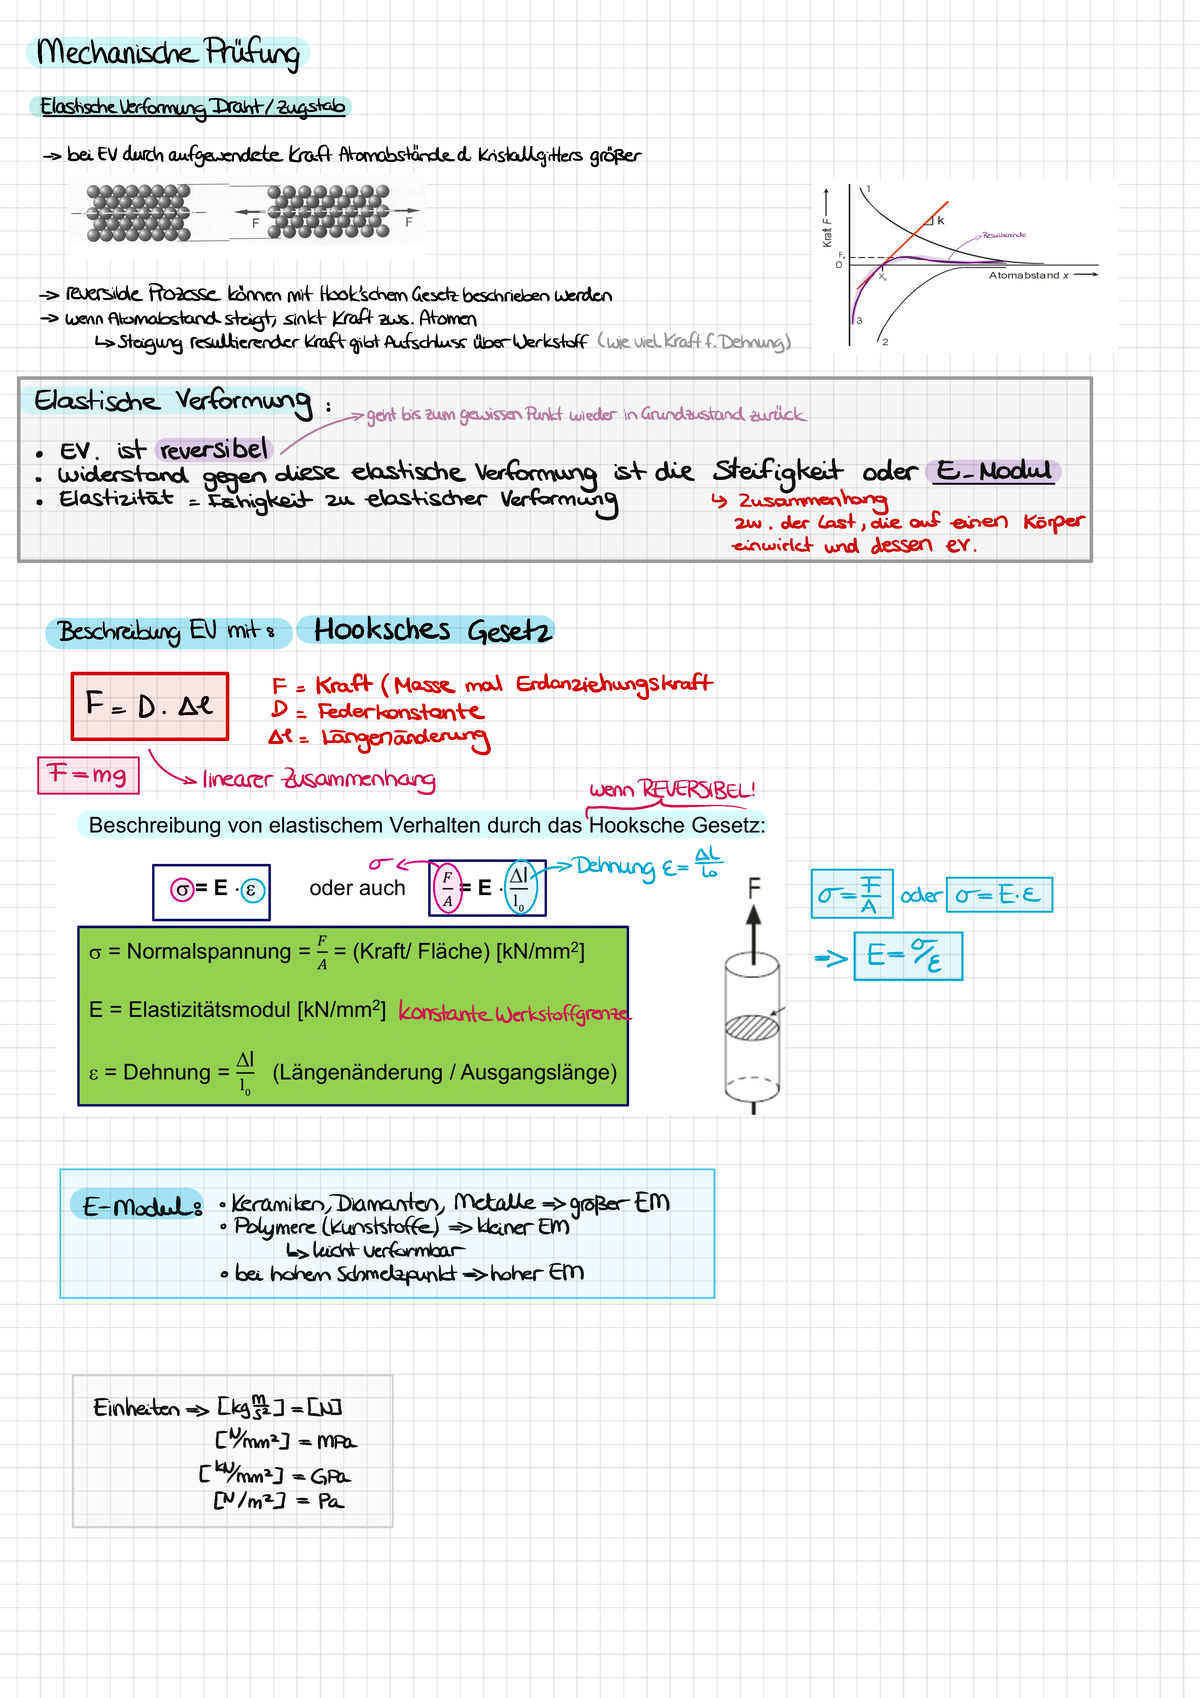 Mechanische Prüfung
Elastische Verformung Draht/Zugstab
→ bei EV durch aufgewendete Kraft Atomabstände d. Kristallgitters größer
F F
Kraft F
1
k
Resultierende
F
0
x₀
Atomabstand x
3
2
→ reversilde Prozesse können mit Hook'schem Gesetz beschrieben werden
→ wenn Atomabstand steigt, sinkt Kraft zws. Atomen
↳ Steigung resultierender Kraft gibt Aufschluss über Werkstoff (wie viel Kraft f. Dehnung)
Elastische Verformung :
→ geht bis zum gewissen Punkt wieder in Grundzustand zurück
• EV. ist reversibel
• widerstand gegen diese elastische Verformung ist die Steifigkeit oder E-Modul
• Elastizität = Fähigkeit zu elastischer Verformung
↳ Zusammenhang
zw. der Last, die auf einen Körper
einwirkt und dessen ev.
Beschreibung EV mit: Hooksches Gesetz
F = D · Δl
F = Kraft (Masse mal Erdanziehungskraft
D = Federkonstante
Δl = Längenänderung
F = mg
→ linearer Zusammenhang
wenn REVERSIBEL!
Beschreibung von elastischem Verhalten durch das Hooksche Gesetz:
σ = E · ε oder auch F/A = E · Δl/l₀
σ
→ Dehnung ε = ΔL/L₀
F
σ = F/A oder σ = E·ε
=> E = σ/ε
σ = Normalspannung = F/A = (Kraft/ Fläche) [kN/mm²]
E = Elastizitätsmodul [kN/mm²] konstante Werkstoffgrenze
ε = Dehnung = Δl/l₀ (Längenänderung / Ausgangslänge)
E-Modul: • Keramiken, Diamanten, Metalle => großer EM
• Polymere (Kunststoffe) => kleiner EM
↳ leicht verformbar
• bei hohem Schmelzpunkt => hoher EM
Einheiten => [kg m/s²] = [N]
[N/mm²] = MPa
[kN/mm²] = GPa
[N/m²] = Pa